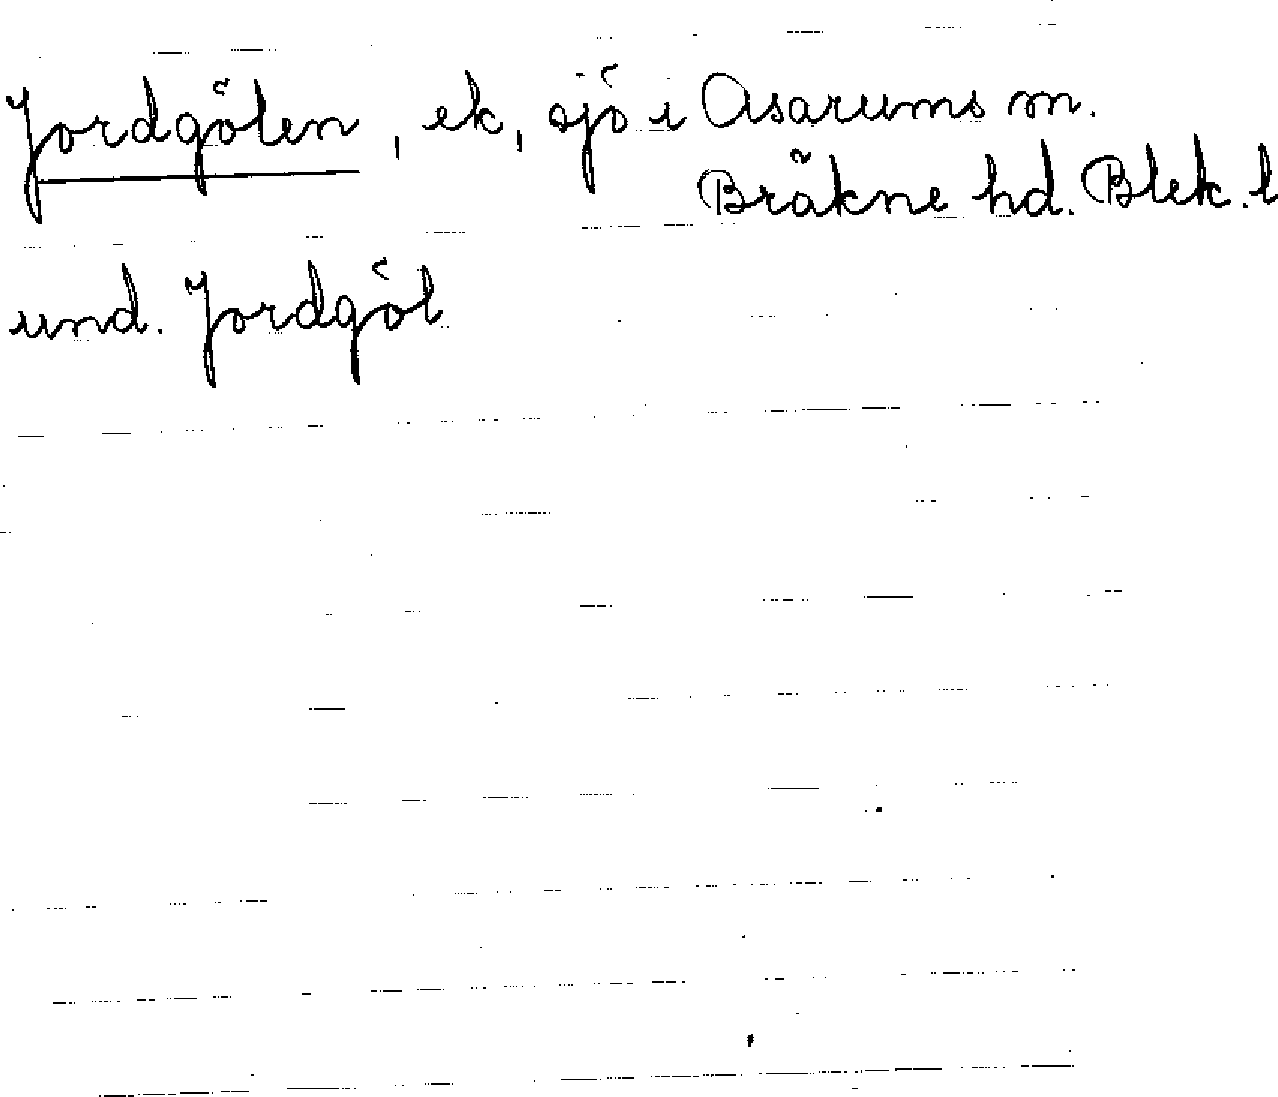 Jordgölen, ek, sjö i Asarums sn.
Bräkne hd. Blek. l
und. Jordgöl